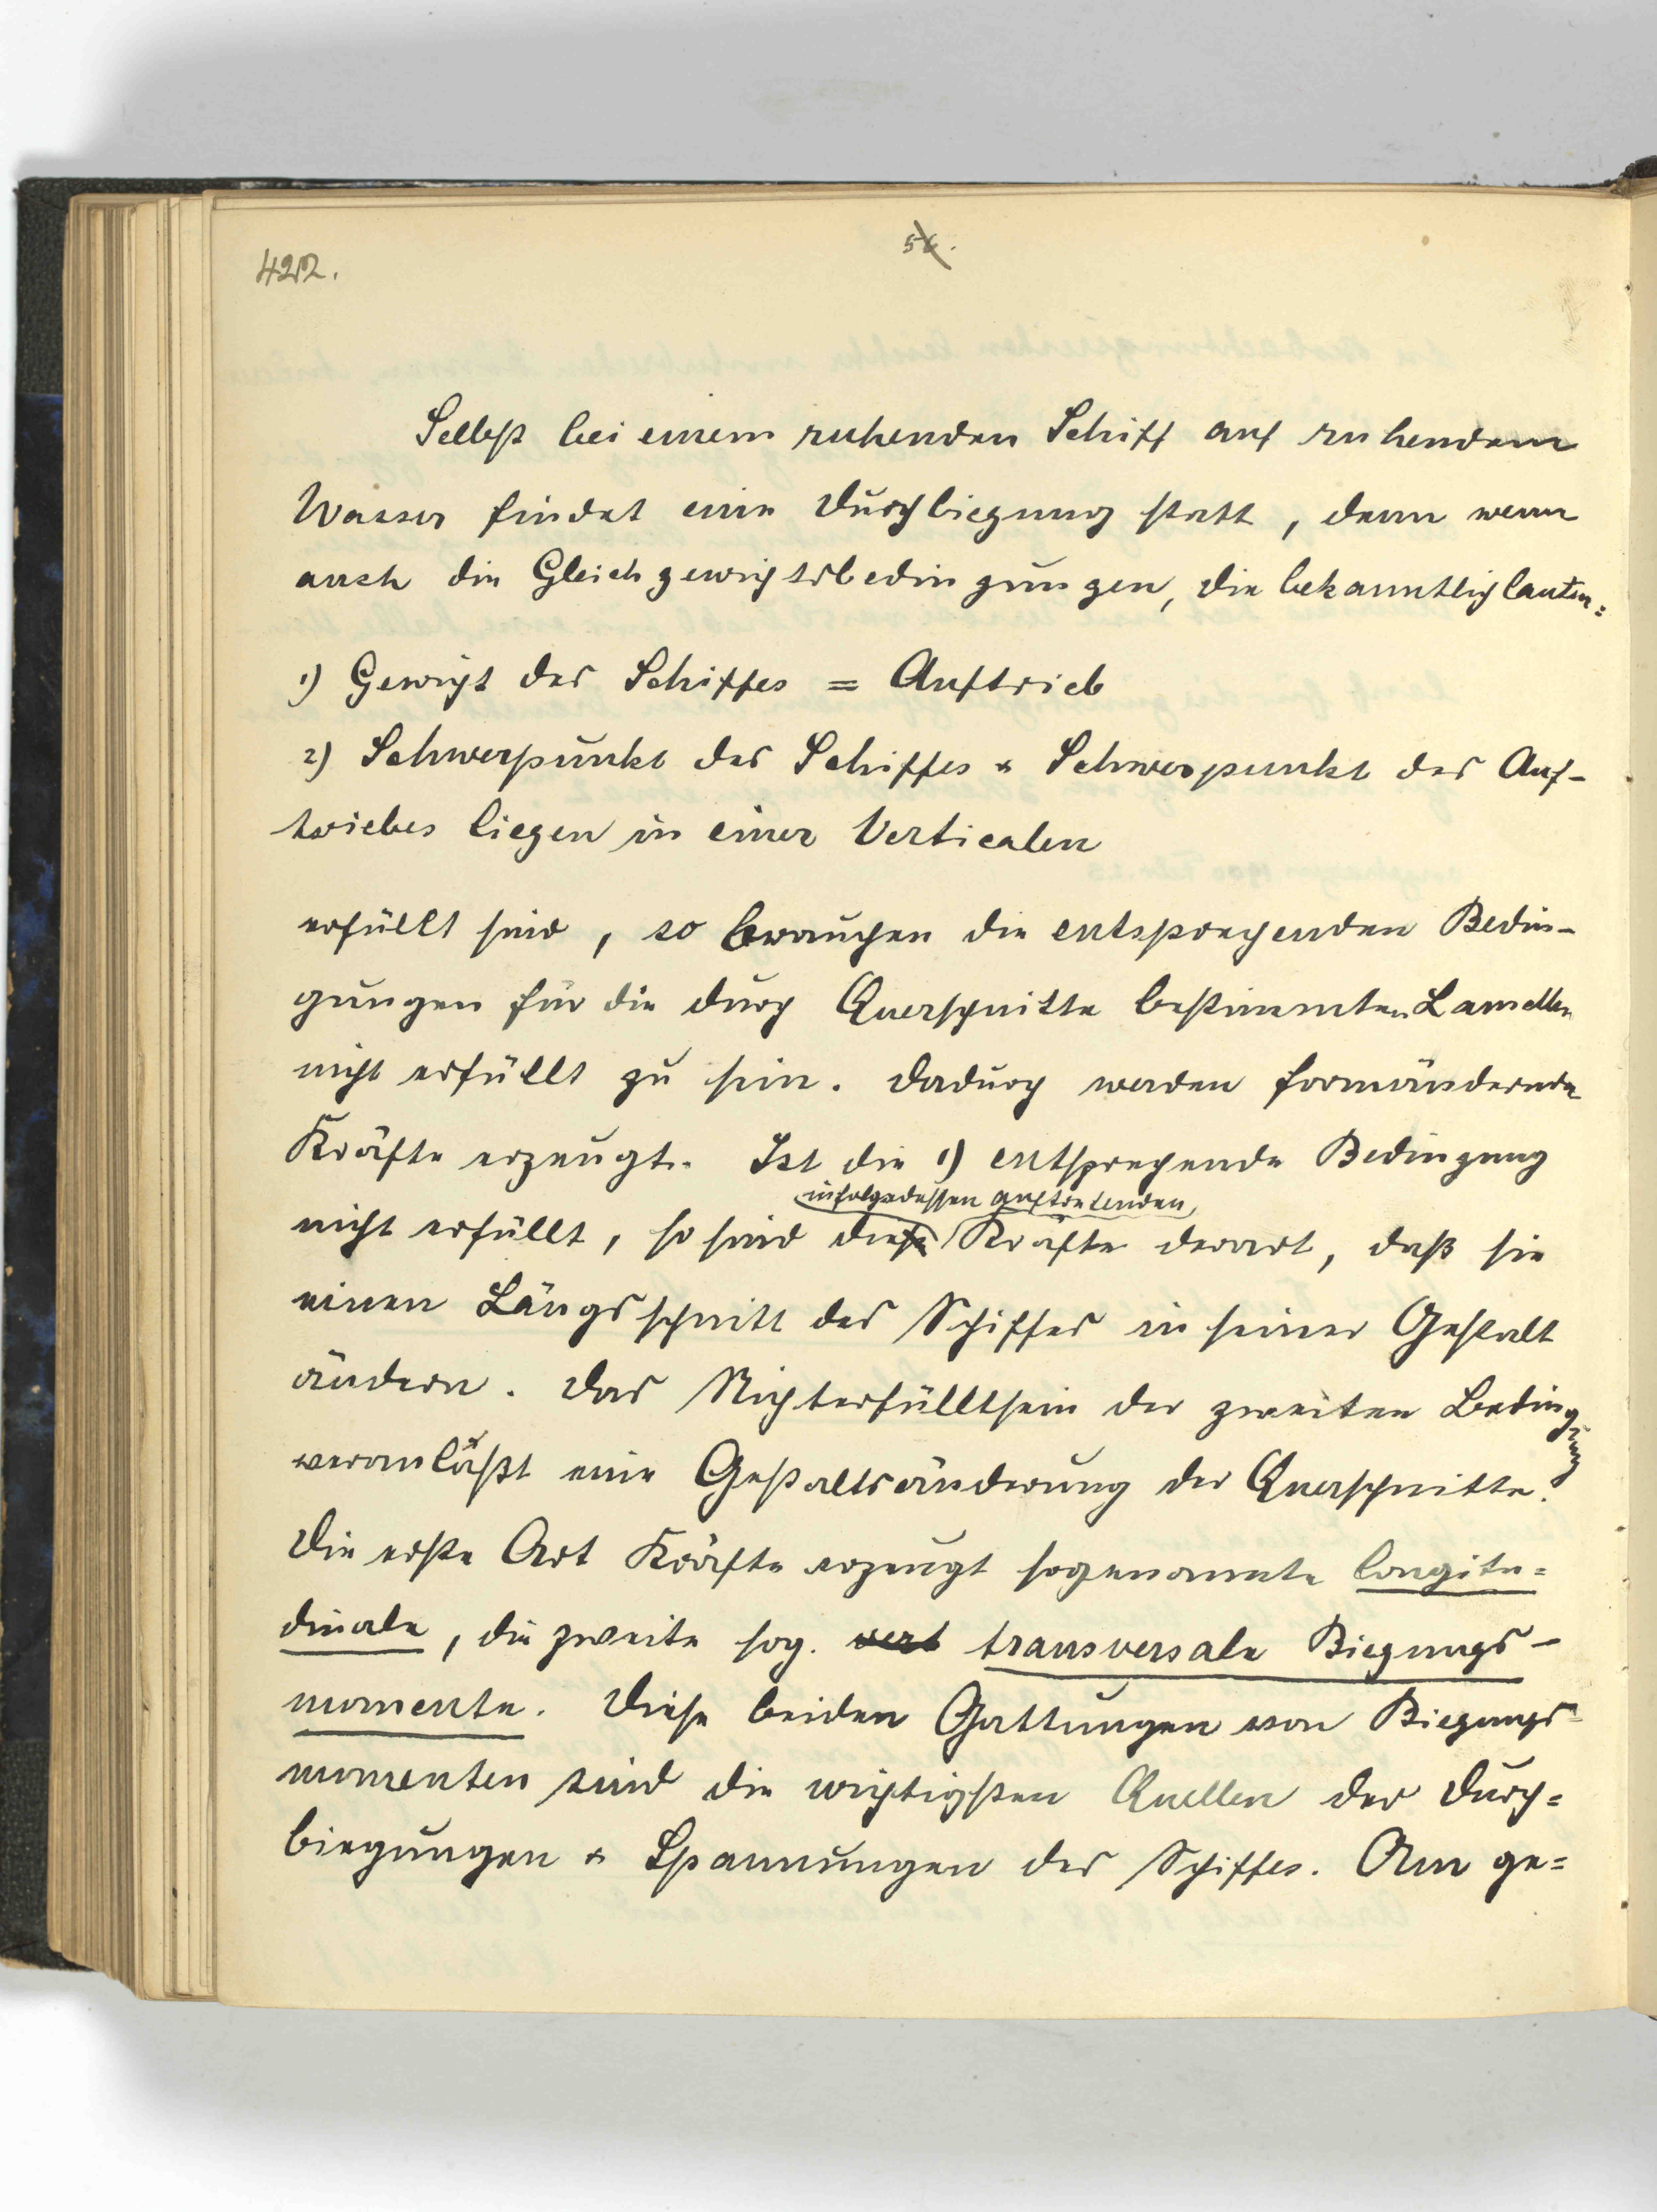 56.
422.
Selbst bei einem ruhenden Schiff auf ruhendem
Wasser findet eine Durchbiegung statt, denn wenn
auch die Gleichgewichtsbedingungen, die bekanntlich lauten:
1) Gewicht des Schiffes = Auftrieb
2) Schwerpunkt des Schiffes & Schwerpunkt des Auf-
triebes liegen in einer Verticalen
erfüllt sind, so brauchen die entsprechenden Bedin-
gungen für die durch Querschnitte bestimmten Lamellen
nicht erfüllt zu sein. Dadurch werden formändernde
Kräfte erzeugt. Ist die 1) entsprechende Bedingung
infolgedessen auftretenden
nicht erfüllt, so sind diese Kräfte derart, daß sie
einen Längsschnitt des Schiffes in seiner Gestalt
ändern. Das Nichterfülltsein der zweiten Bedingung
veranlaßt eine Gestaltsänderung der Querschnitte.
Die erste Art Kräfte erzeugt sogenannte longitu=
dinale, die zweite sog. vert transversale Biegungs-
momente. Diese beiden Gattungen von Biegungs=
momenten sind die wichtigsten Quellen der Durch=
biegungen & Spannungen des Schiffes. Am ge=